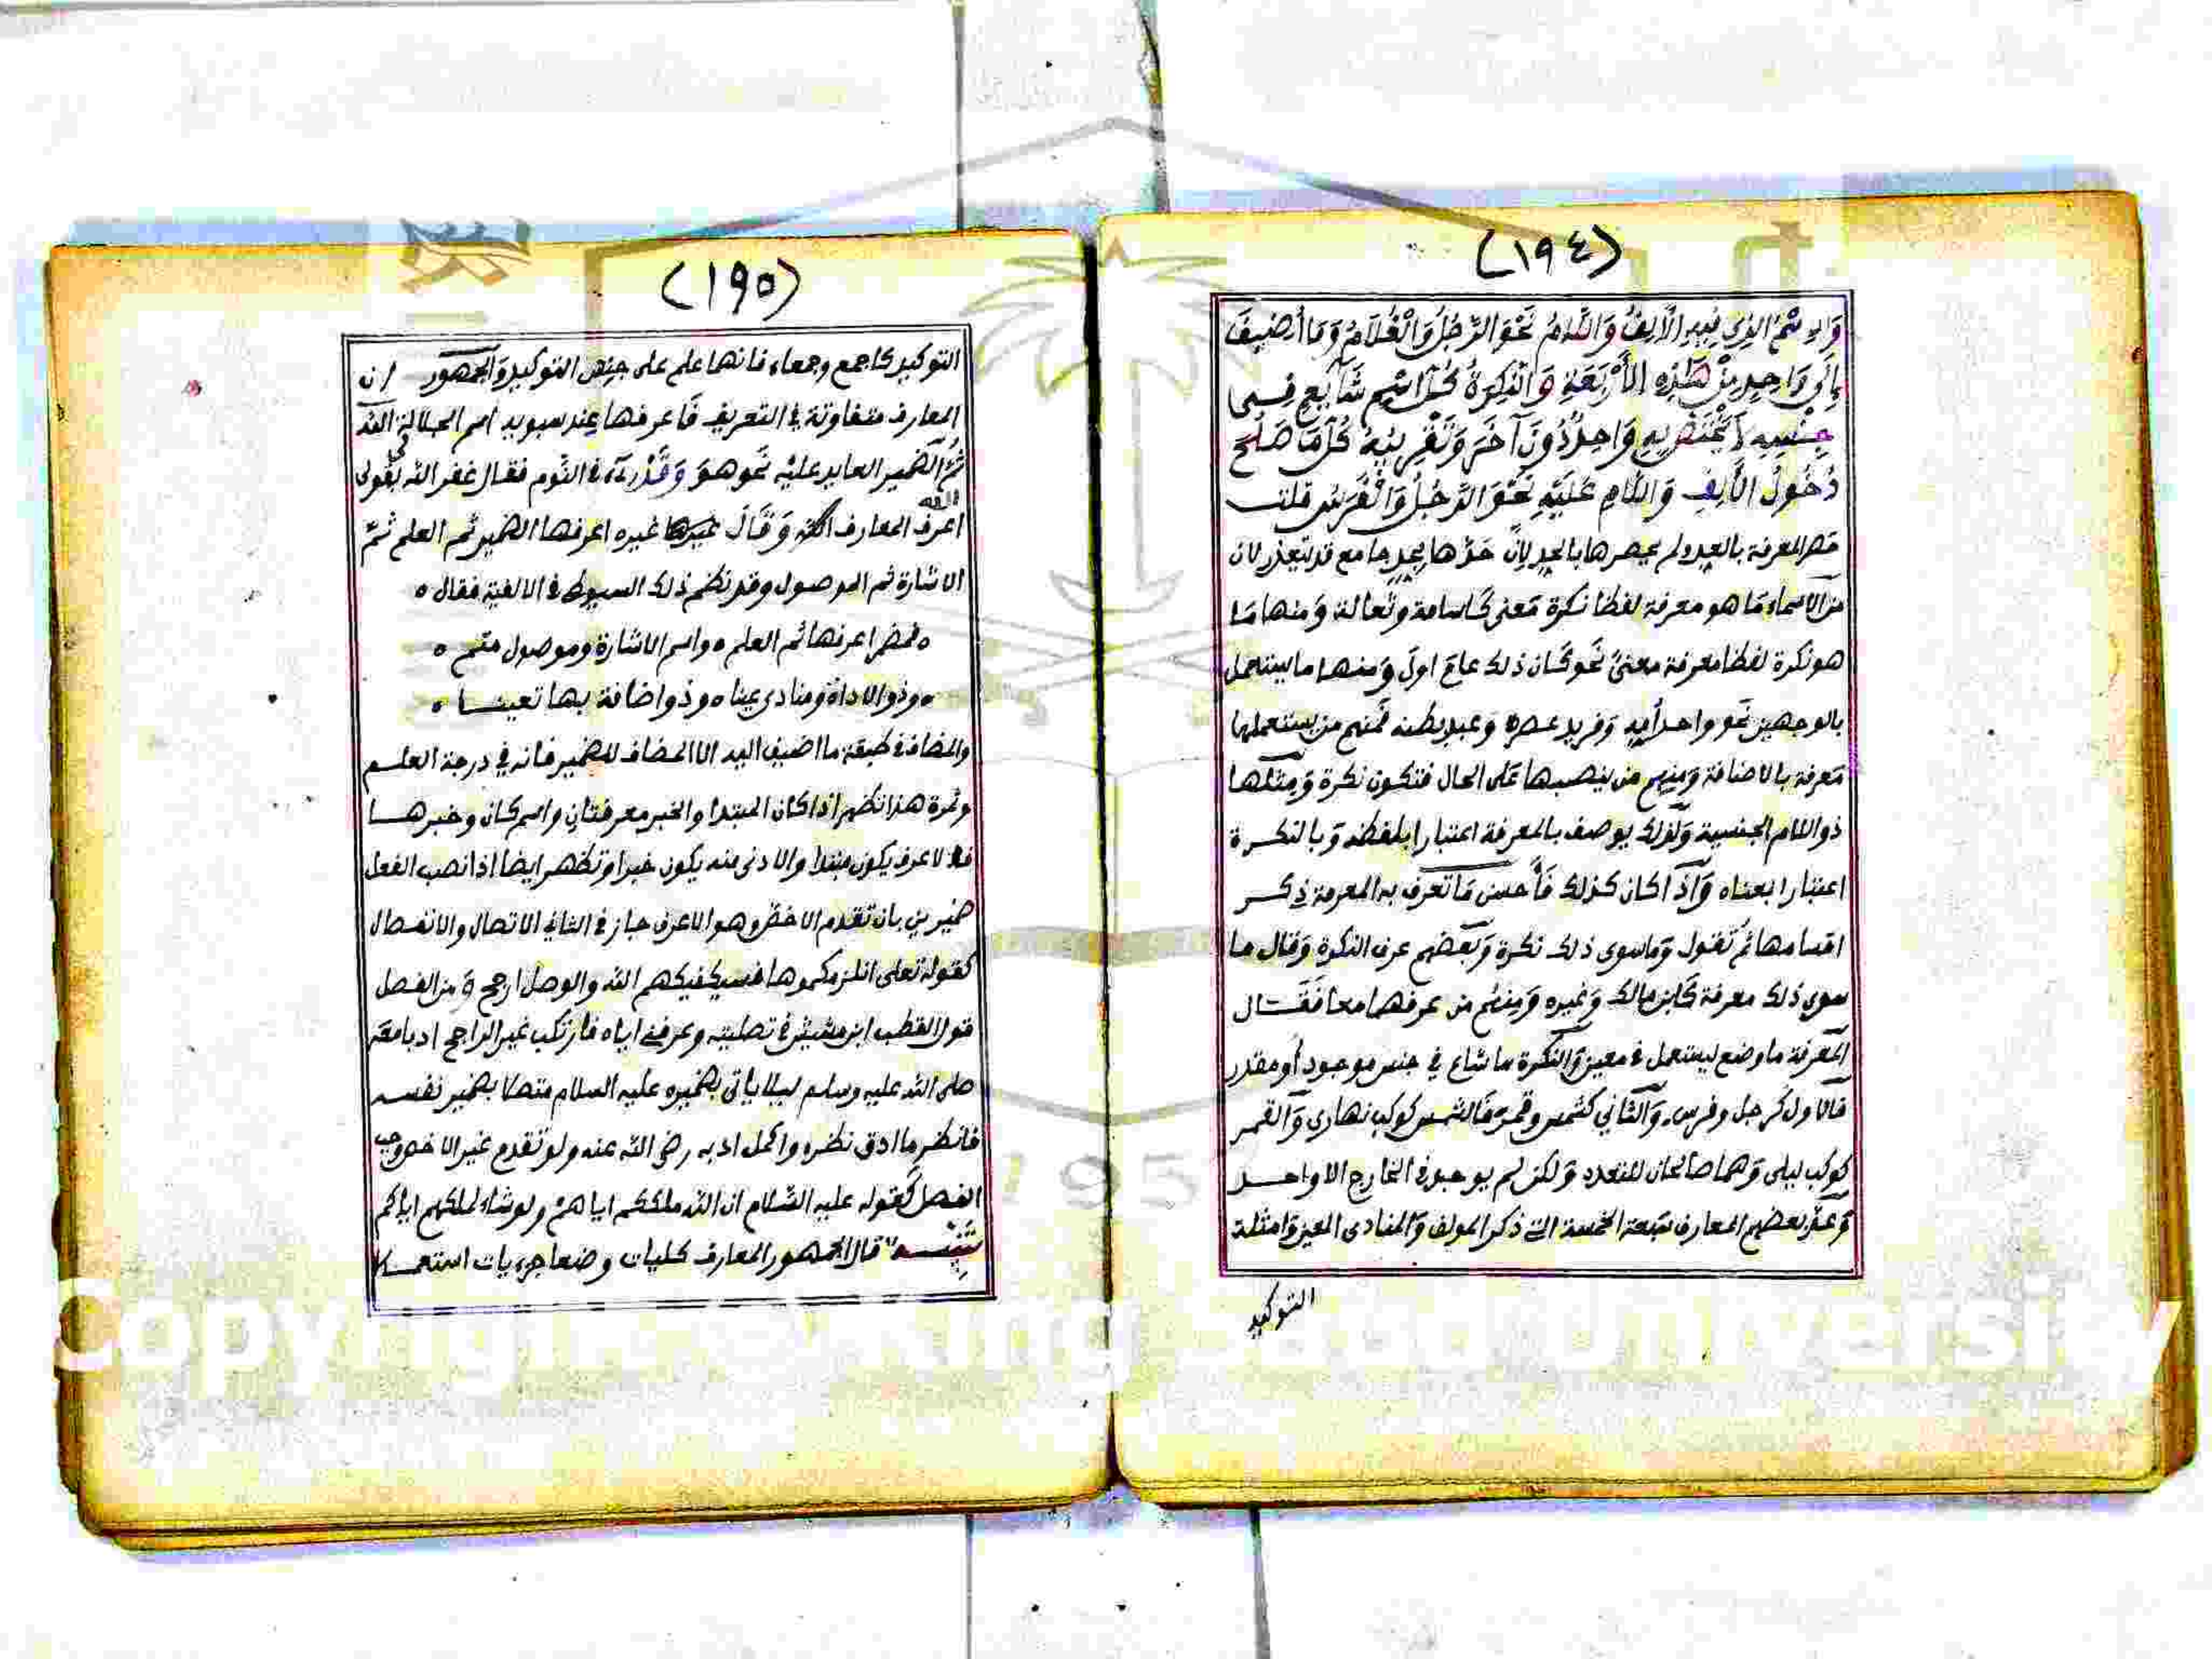 (١٩٤)
وَالاِسْمُ الذِي فِيهِ الْأَلِفُ وَاللَّامُ نَحْوَ الرَّجُلُ وَالْغُلَامُ وَمَا أُضِيفَ
إِلَى وَاحِدٍ مِنْ هَذِهِ الأَرْبَعَةِ وَالنَّكِرَةُ كُلُّ اسْمٍ شَايِعٍ فِي
جِنْسِهِ لَا يَخْتَصُّ بِهِ وَاحِدٌ دُونَ آخَرَ وَتَقْرِيبُهُ كُلُّ مَا صَلُحَ
دُخُولُ الْأَلِفِ وَاللَّامِ عَلَيْهِ نَحْوَ الرَّجُلُ وَالْفَرَسُ قلت
حصر المعرفة بالعد ولم يحصرها بالحد لأن حدّها بحد جامع قد تعذر لأن
من الأسماء ما هو معرفة لفظا نكرة معنى كأسامة وثعالة ومنها ما
هو نكرة لفظا معرفة معنىً نحو كان ذلك عام اول ومنها ما يستعمل
بالوجهين نحو واحد أمه وفريد عصره وعبد بطنه فمنهم من يستعملها
معرفة بالاضافة ومنهم من ينصبها على الحال فتكون نكرة ومثلها
ذو اللام الجنسية ولذلك يوصف بالمعرفة اعتبارا بلفظه وبالنكرة
اعتبارا بمعناه وَاذا كان كذلك فأحسن ما تعرف به المعرفة ذكر
اقسامها ثم تقول وما سوى ذلك نكرة وبعضهم عرف النكرة وقال ما
سوى ذلك معرفة كابن مالك وغيره ومنهم من عرفهما معا فقال
المعرفة ما وضع ليستعمل في معين والنكرة ما شاع في جنس موجود أو مقدر
فالاول كرجل وفرس والثاني كشمس وقمر فالشمس كوكب نهاري والقمر
كوكب ليلى وهما صالحان للتعدد ولكن لم يوجد في الخارج الا واحد
وعدّ بعضهم المعارف سبعة الخمسة التي ذكر المولف والمنادى المعين وامثلة
التوكيد
(١٩٥)
التوكيد كاجمع وجمعاء فانها علم على جنس التوكيد والجمهور ان
المعارف متفاوتة في التعريف فاعرفها عند سبويه اسم الجلالة الله
ثم الضمير العايد عليه نحو هو وقد رءي في النوم فقال غفر الله لي بقولى
الله
اعرف المعارف الله وقال غيره اعرفها الضمير ثم العلم ثم
الاشارة ثم الموصول وقد نظم ذلك السيوطى في الالفية فقال ه
ه فمضمر اعرفها ثم العلم ه واسم الاشارة وموصول متم ه
ه وذو الاداة ومنادى عينا ه وذو اضافة بها تعينا ه
والمضاف في طبقة ما اضيف اليه الا المضاف للضمير فانه في درجة العلم
وثمرة هذا تظهر اذا كان المبتدا والخبر معرفتان واسم كان وخبرها
فالاعرف يكون مبتدا والادنى منه يكون خبرا وتظهر ايضا اذا نصب الفعل
ضميرين بان تقدم الاخص وهو الاعرف جاز في الثاني الاتصال والانفصال
كقوله تعلى انلزمكموها فسيكفيكهم الله والوصل ارجح من الفصل
قول القطب ابن مشيش في تصليته وعرفني اياه فارتكب غير الراجح ادبا معه
صلى الله عليه وسلم ليلا ياتى بضميره عليه السلام متصلا بضمير نفسه
فانظر ما ادق نظره واكمل ادبه رضي الله عنه ولو تقدم غير الاخص وجب
الفصل كقوله عليه السّلام ان الله ملككم اياهم ولو شاء لملكهم اياكم
تنبيه قال الجمهور المعارف كليات وضعا جزءيات استعمالا